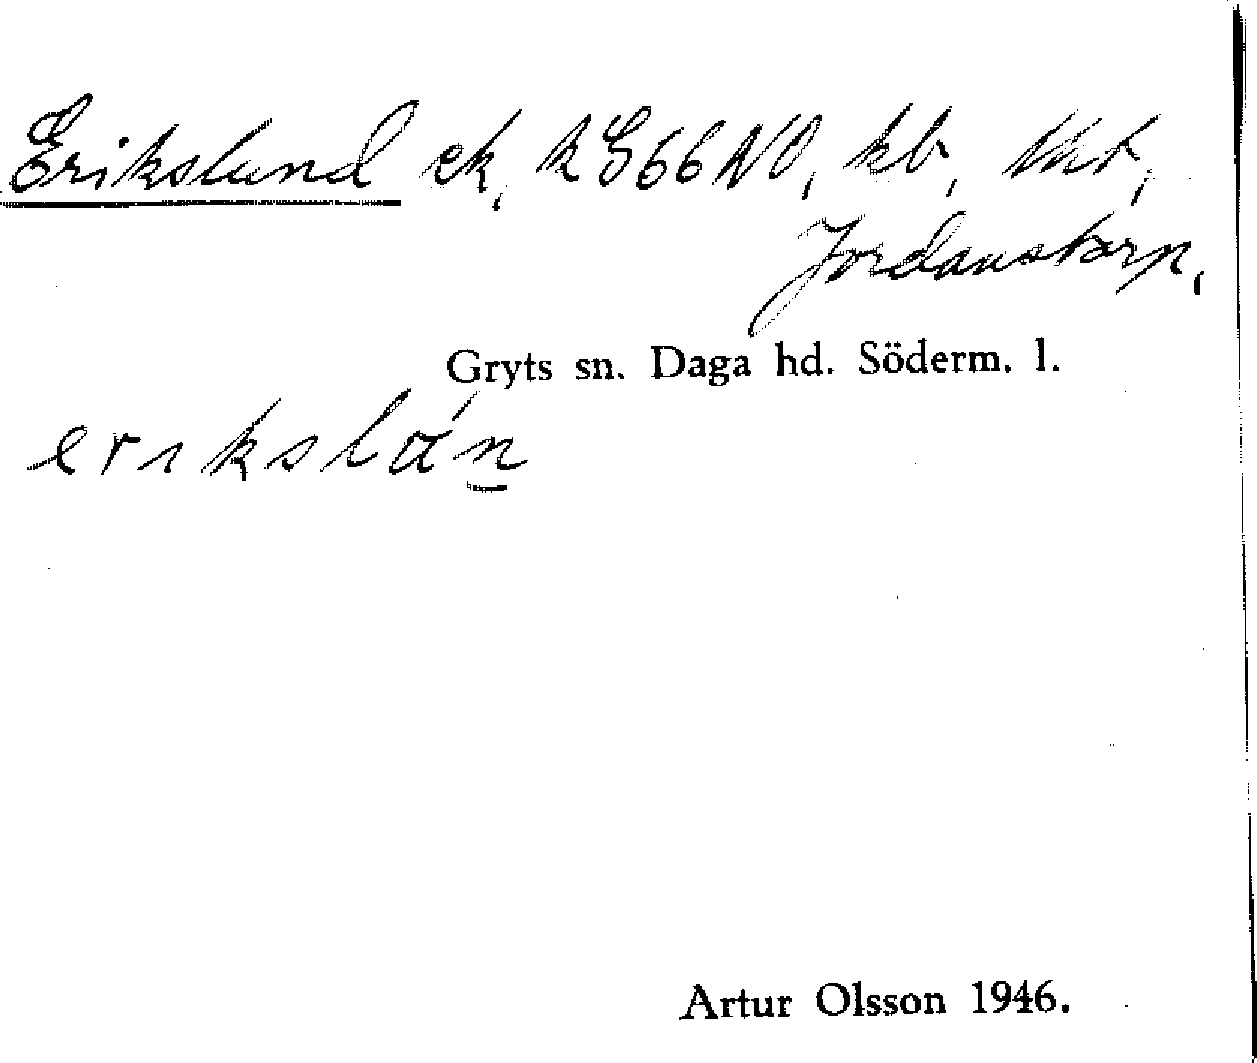 Erikslund ek, R S66NO, kb, tht,
Jordanstorp,
Gryts sn. Daga hd. Söderm. l.
erikslán
Artur Olsson 1946.